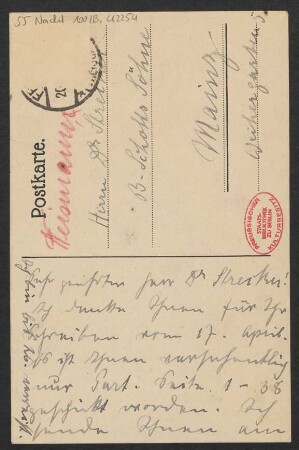 55 Nachl 100/B, 42254
Postkarte.
Heismann
Herrn Dr Strecker
B. Schotts Söhne
Mainz
Weihergarten 5
PREUSSISCHER
STAATS-
BIBLIOTHEK
ZU BERLIN
KULTURBESITZ
Sehr geehrter Herr Dr Strecker!
Ich danke Ihnen für Ihr
Schreiben vom 17. April.
Es ist Ihnen versehentlich
nur Part. Seite 1 - 38
geschickt worden. Ich
sende Ihnen am